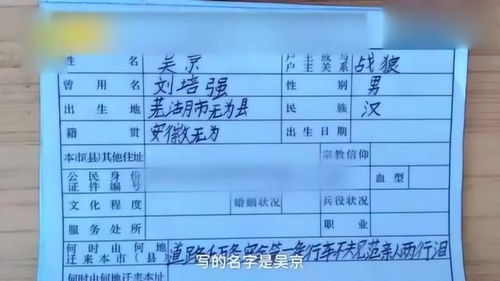 姓 名 吴京 户主或与户主关系 战狼
曾用名 刘培强 性别 男
出生地 芜湖市无为县 民族 汉
籍贯 安徽无为 出生日期
本市(县)其他住址 宗教信仰
公民身份证件编号 血型
文化程度 婚姻状况 兵役状况
服务处所 职业
何时由何地迁来本市(县) 道路千万条安全第一条行车不规范亲人两行泪
写的名字是吴京
何时由何地迁来本址